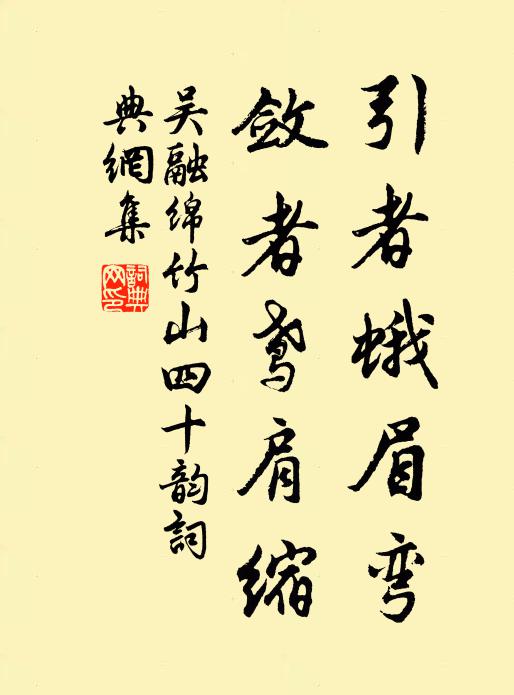 引者蛾眉弯
敛者鸢肩缩
吴融绵竹山四十韵词
典網集
詞典网印